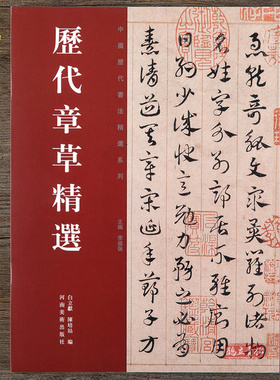 歷代章草精選
中國歷代書法精選系列
主編
白立獻 陳培站 編
河南美術出版社
急就奇觚與衆異羅列諸物
名姓字分別部居不雜廁用
日約少誠快意勉力務之必有
憙請道其章宋延年鄭子方